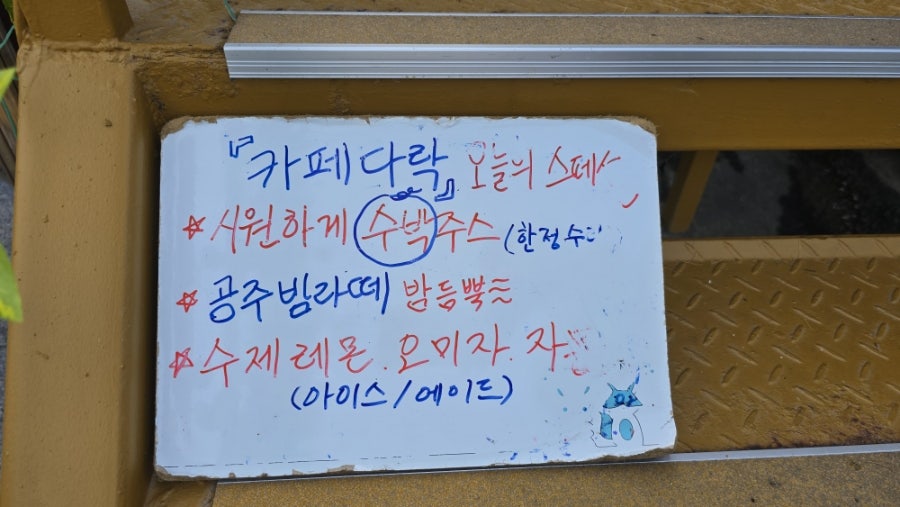 『카페다락』 오늘의
☆ 시원하게 수박주스
☆ 공주밤라떼 밤듬뿍
☆ 수제레몬.오미자.
(아이스/에이드)